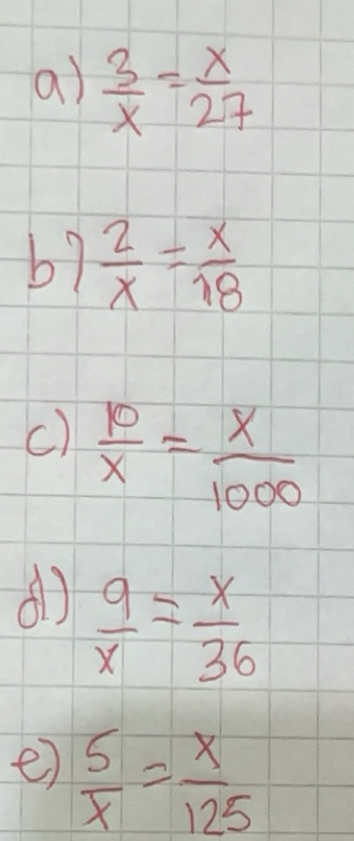 a) 3/x = x/27
b) 2/x = x/18
c) 10/x = x/1000
d) 9/x = x/36
e) 5/x = x/125